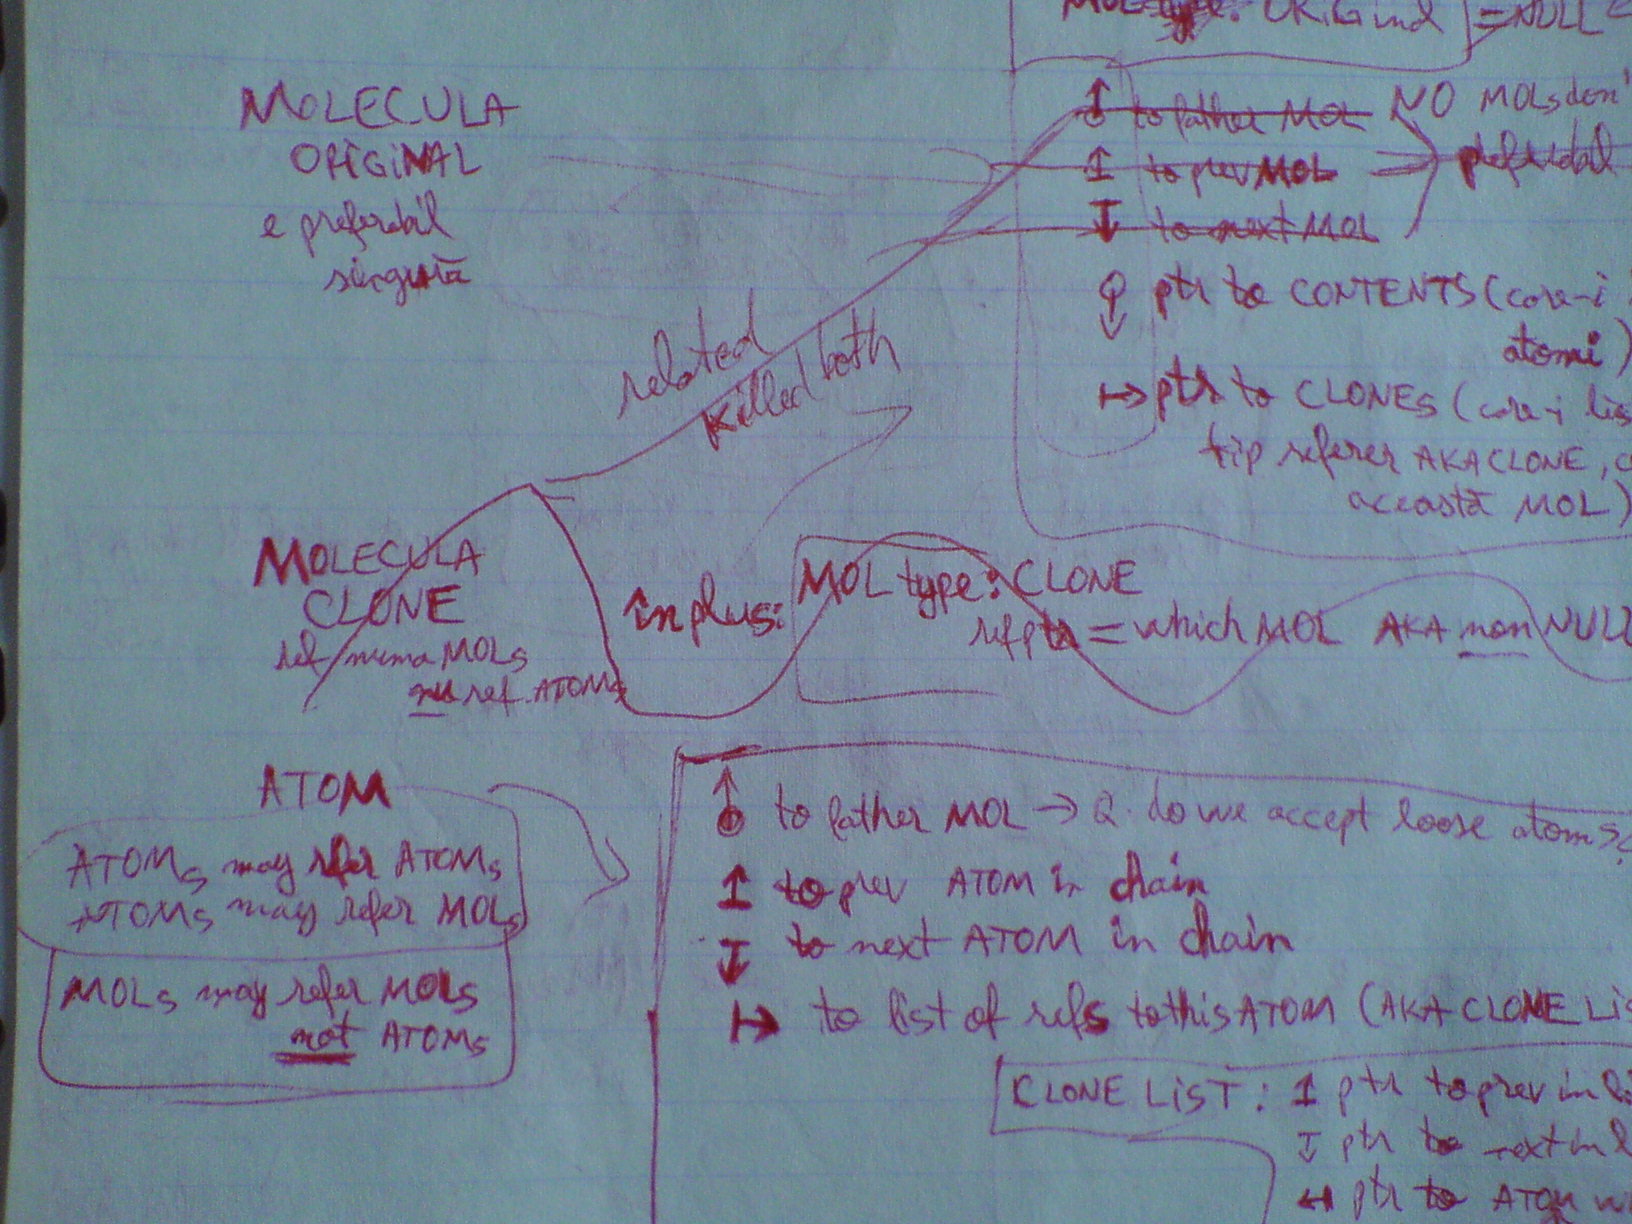 MOL type: ORiGinal =NULL
MOLECULA
ORIGINAL
e preferabil
singură
to father MOL NO MOLs don'
to prev MOL preferabil
to next MOL
ptr to CONTENTS (care-i
atomi)
ptr to CLONEs (care-i lis
tip referer AKA CLONE, c
această MOL)
related
killed both
MOLECULA
CLONE
ref numa MOLs
nu ref. ATOMs
în plus:
MOL type: CLONE
ref ptr = which MOL AKA non NULL
ATOM
ATOMs may refer ATOMs
ATOMs may refer MOLs
MOLs may refer MOLs
not ATOMs
to father MOL → Q. do we accept loose atoms?
to prev ATOM in chain
to next ATOM in chain
to list of refs to this ATOM (AKA CLONE LiS
CLONE LiST: ptr to prev in li
ptr to next in l
ptr to ATOM w